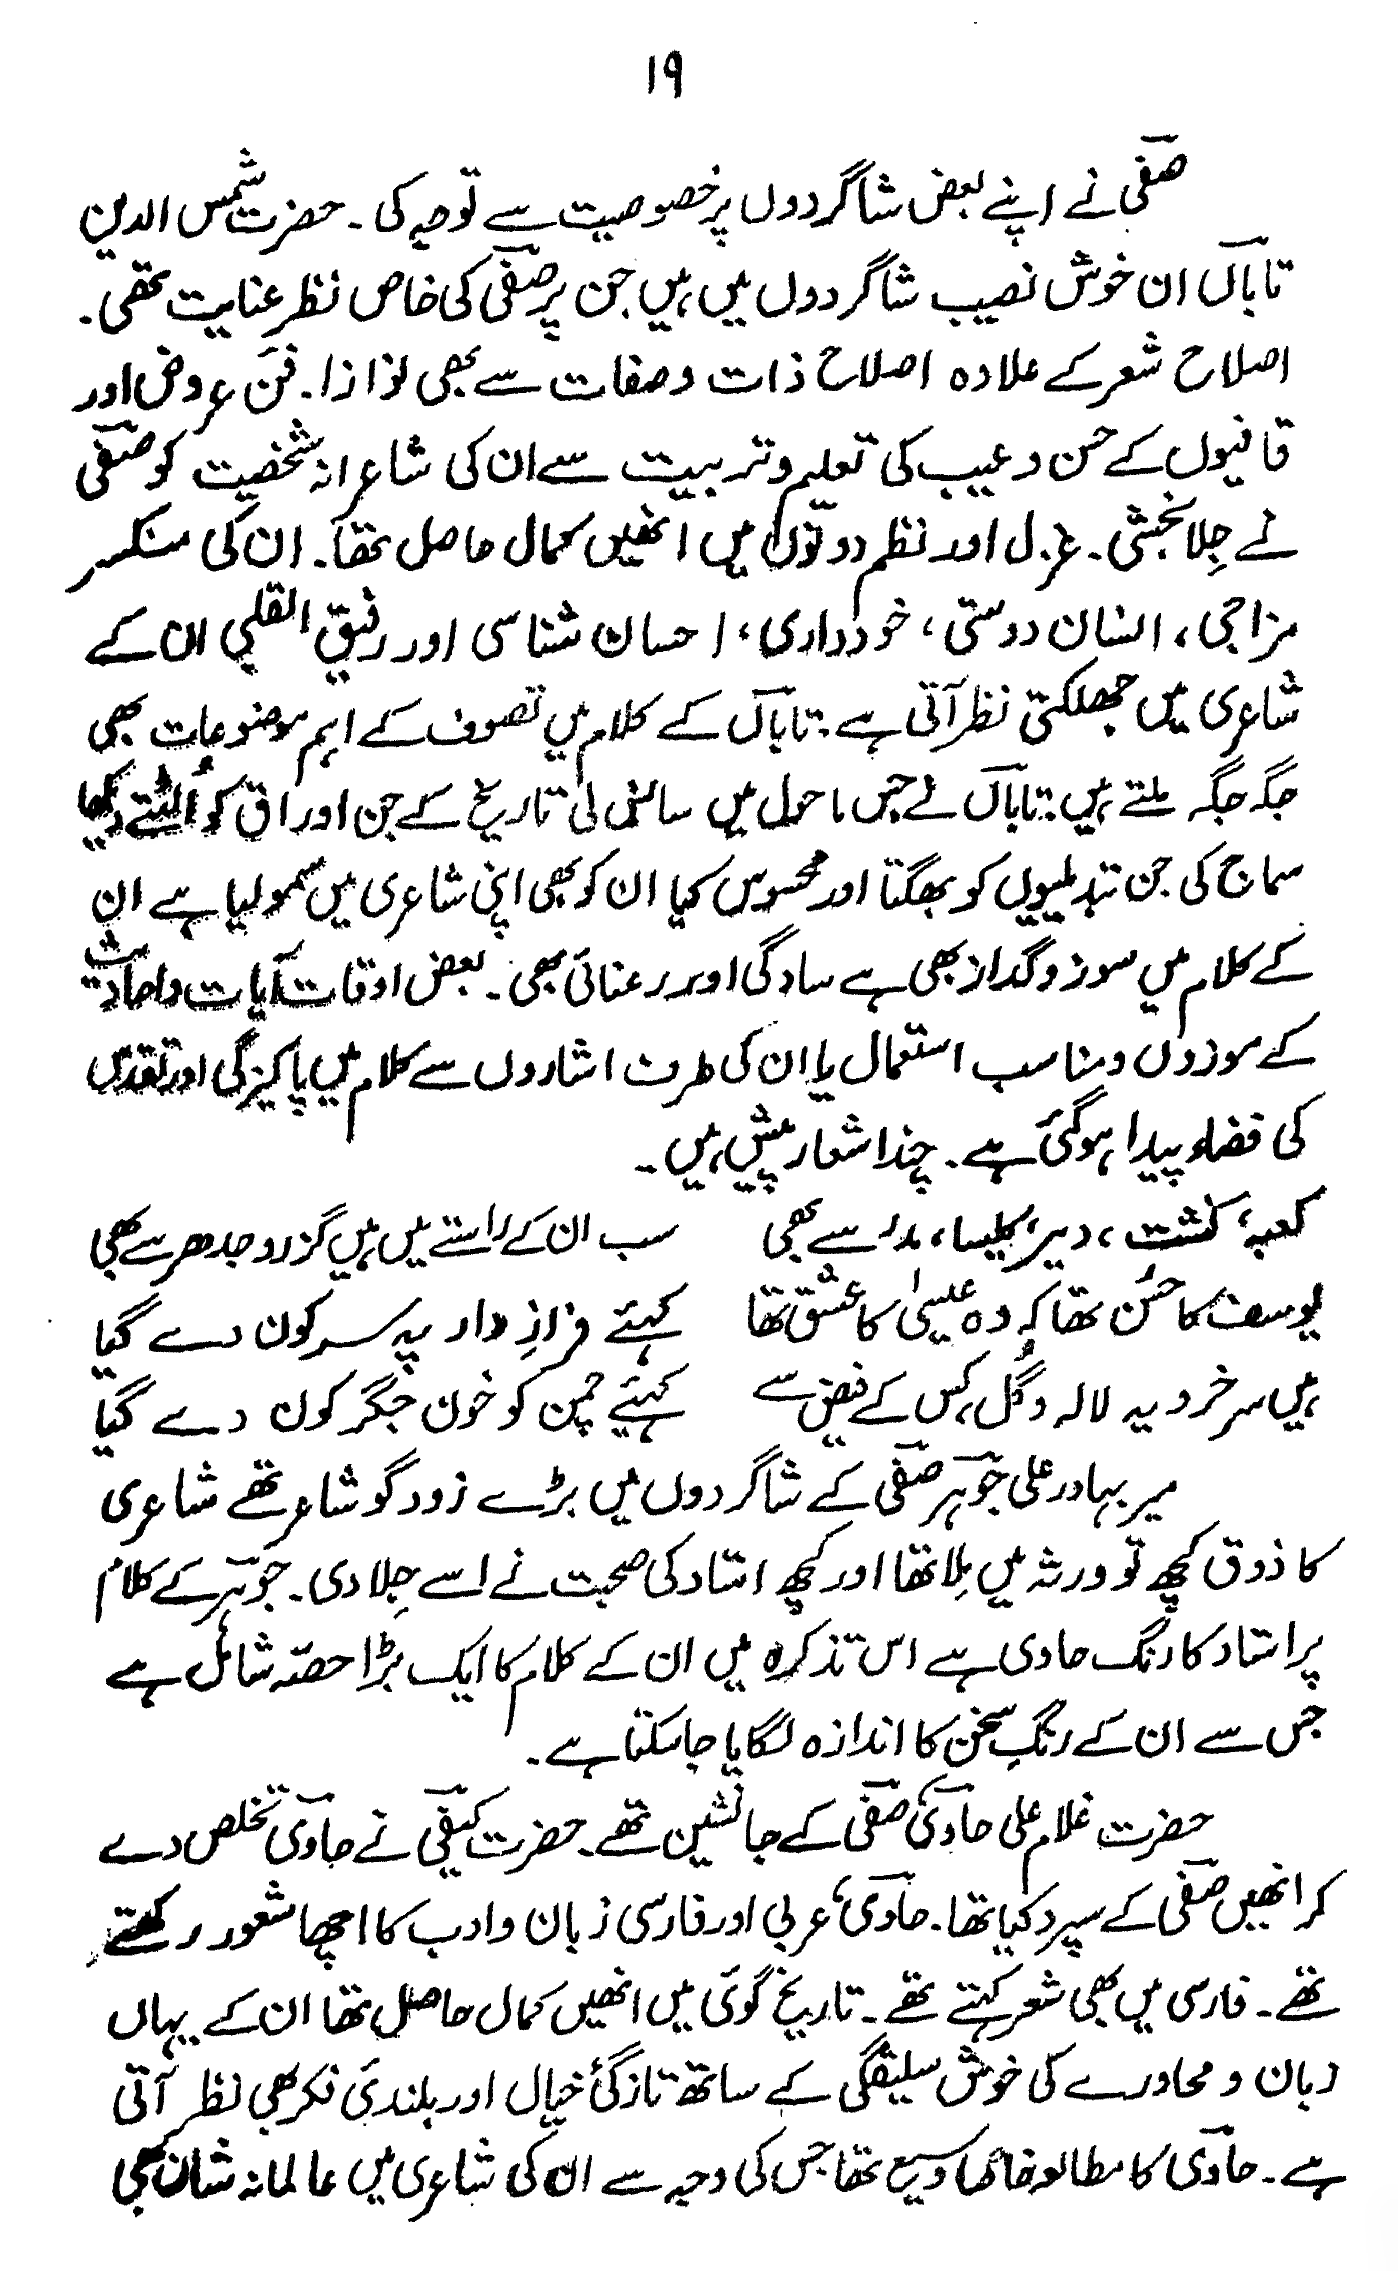 ۱۹
صفی نے اپنے بعض شاگردوں پر خصوصیت سے توجہ کی ۔ حضرت شمس الدین
تاباں ان خوش نصیب شاگردوں میں ہیں جن پر صفی کی خاص نظرِ عنایت تھی ۔
اصلاح شعر کے علاوہ اصلاح ذات و صفات سے بھی نوازا ۔ فن عروض اور
قافیوں کے حسن و عیب کی تعلیم و تربیت سے ان کی شاعرانہ شخصیت کو صفی
نے جِلا بخشی ۔ غزل اور نظم دونوں میں انھیں کمال حاصل تھا ۔ ان کی منکسر
مزاجی ، انسان دوستی ، خودداری ، احسان شناسی اور رفیق القلبی ان کے
شاعری میں جھلکتی نظر آتی ہے ۔ تاباں کے کلام میں تصوف کے اہم موضوعات بھی
جگہ جگہ ملتے ہیں ۔ تاباں نے جس ماحول میں سانس لی تاریخ کے جن اوراق کو اُلٹتے دیکھا
سماج کی جن تبدیلیوں کو بھگتا اور محسوس کیا ان کو بھی اپنی شاعری میں سمو لیا ہے ان
کے کلام میں سوز و گداز بھی ہے سادگی اور رعنائی بھی ۔ بعض اوقات آیات و احادیث
کے موزوں و مناسب استعمال یا ان کی طرف اشاروں سے کلام میں پاکیزگی اور تقدس
کی فضاء پیدا ہوگئی ہے ۔ چند اشعار پیش ہیں ۔
کعبہ ، کنشت ، دیر ، کلیسا ، مدرسے بھی سب ان کے راستے میں ہیں گزرو جدھر سے بھی
یوسف کا حُسن تھا کہ وہ عیسیٰ کا عشق تھا کہئے فرازِ دار پہ سر کون دے گیا
ہیں سرخرو یہ لالہ و گُل کس کے فیض سے کہئیے چمن کو خون جگر کون دے گیا
میر بہادر علی جوہر صفی کے شاگردوں میں بڑے زود گو شاعر تھے شاعری
کا ذوق کچھ تو ورثہ میں مِلا تھا اور کچھ استاد کی صحبت نے اسے جِلا دی ۔ جوہر کے کلام
پر استاد کا رنگ حاوی ہے اس تذکرہ میں ان کے کلام کا ایک بڑا حصّہ شامل ہے
جس سے ان کے رنگِ سخن کا اندازہ لگایا جاسکتا ہے ۔
حضرت غلام علی حاوی ، صفی کے جانشین تھے ۔ حضرت کیفی نے حاوی تخلص دے
کر انھیں صفی کے سپرد کیا تھا ۔ حاوی ، عربی اور فارسی زبان و ادب کا اچھا شعور رکھتے
تھے ۔ فارسی میں بھی شعر کہتے تھے ۔ تاریخ گوئی میں انھیں کمال حاصل تھا ان کے یہاں
زبان و محاورے کی خوش سلیقگی کے ساتھ تازگئ خیال اور بلندئ فکر بھی نظر آتی
ہے ۔ حاوی کا مطالعہ خاصا وسیع تھا جس کی وجہ سے ان کی شاعری میں عالمانہ شان بھی